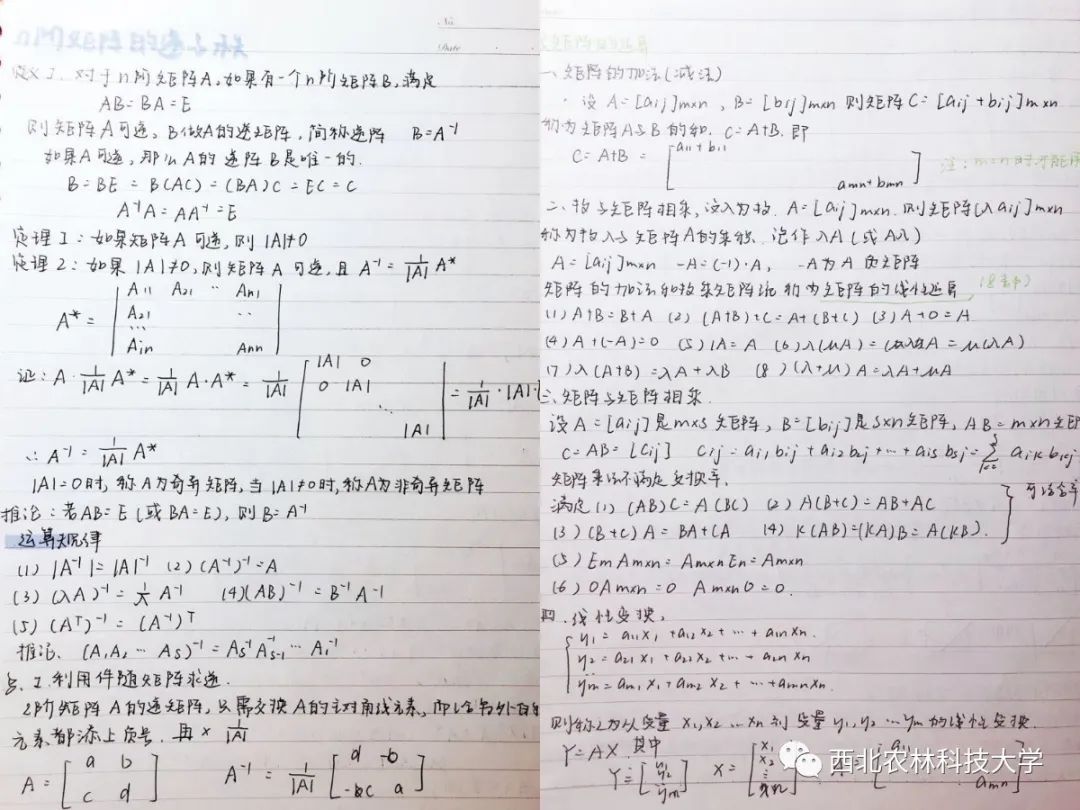 No
Date
定义1. 对于n阶矩阵A,如果有一个n阶矩阵B,满足
AB=BA=E
则矩阵A可逆,B做A的逆矩阵,简称逆阵 B=A⁻¹
如果A可逆,那么A的逆阵B是唯一的.
B=BE=B(AC)=(BA)C=EC=C
A⁻¹A=AA⁻¹=E
定理1:如果矩阵A可逆,则|A|≠0
定理2:如果|A|≠0,则矩阵A可逆,且 A⁻¹=1/|A| A*
A11 A21 ·· An1
A* = A21 ··
...
A1n Ann
证: A·1/|A| A* = 1/|A| A·A* = 1/|A| [|A| 0
0 |A| = 1/|A|·|A|
⋱
|A|
∴ A⁻¹ = 1/|A| A*
|A|=0时,称A为奇异矩阵,当|A|≠0时,称A为非奇异矩阵
推论:若AB=E(或BA=E),则B=A⁻¹
运算规律
(1) |A⁻¹|=|A|⁻¹ (2) (A⁻¹)⁻¹=A
(3) (λA)⁻¹=1/λ A⁻¹ (4) (AB)⁻¹=B⁻¹A⁻¹
(5) (Aᵀ)⁻¹=(A⁻¹)ᵀ
推论. (A₁A₂…As)⁻¹=As⁻¹As-1⁻¹…A₁⁻¹
1.利用伴随矩阵求逆.
2阶矩阵A的逆矩阵,只需交换A的主对角线元素,
元素都添上负号.再×1/|A|
A=[a b A⁻¹=1/|A| [d -b
c d] -c a]
矩阵的运算
一、矩阵的加法(减法)
·设A=[aij]m×n,B=[bij]m×n 则矩阵C=[aij+bij]m×n
称为矩阵A与B的和. C=A+B.即
C=A+B=[a11+b11
amn+bmn]
注:m=n时才能
二、数与矩阵相乘,设λ为数. A=[aij]m×n.则矩阵(λaij)m×n
称为数λ与矩阵A的乘积.记作λA(或Aλ)
A=[aij]m×n -A=(-1)·A, -A为A负矩阵
矩阵的加法和数乘矩阵统称为矩阵的线性运算 (8条)
(1) A+B=B+A (2) (A+B)+C=A+(B+C) (3) A+0=A
(4) A+(-A)=0 (5) 1A=A (6) λ(μA)=(λμ)A=μ(λA)
(7) λ(A+B)=λA+λB (8) (λ+μ)A=λA+μA
三、矩阵与矩阵相乘.
设A=[aij]是m×s矩阵,B=[bij]是s×n矩阵,AB=m×n矩阵
C=AB=[Cij] Cij=ai1b1j+ai2b2j+…+aisbsj=∑ aikbkj
矩阵乘法不满足交换率.
满足(1) (AB)C=A(BC) (2) A(B+C)=AB+AC
(3) (B+C)A=BA+CA (4) K(AB)=(KA)B=A(KB).
可结合率
(5) EmAm×n=Am×nEn=Am×n
(6) 0Am×n=0 Am×n0=0.
四.线性变换,
y1=a11x1+a12x2+…+a1nxn.
y2=a21x1+a22x2+…+a2nxn
ym=am1x1+am2x2+…+amnxn.
则称之为从变量x1,x2…xn到变量y1,y2…ym的线性变换.
Y=AX.其中
Y=[y1 y2 ⋮ ym] X=[x1 x2 ⋮ xn] [a11
amn]
西北农林科技大学